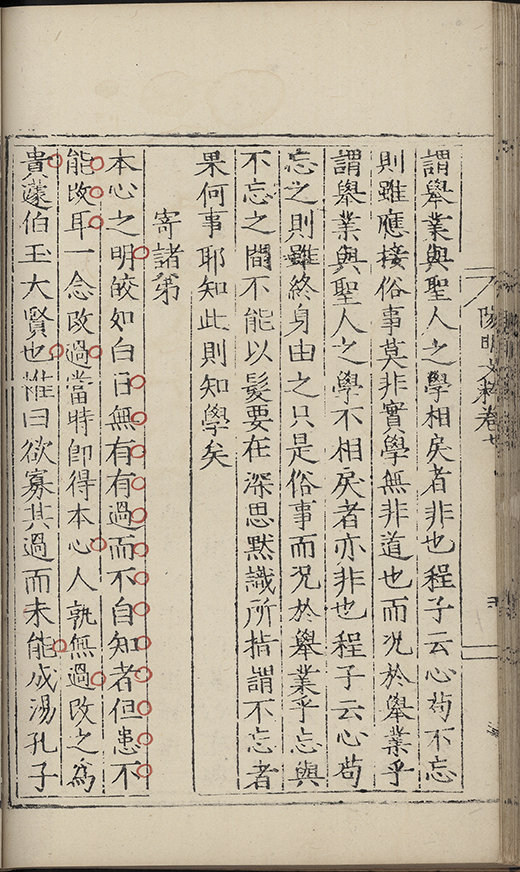 陽明文粹卷七
謂舉業與聖人之學相戾者非也程子云心茍不忘
則雖應接俗事莫非實學無非道也而况於舉業乎
謂舉業與聖人之學不相戾者亦非也程子云心茍
忘之則雖終身由之只是俗事而况於舉業乎忘與
不忘之間不能以髮要在深思默識所指謂不忘者
果何事耶知此則知學矣
寄諸弟
本心之明皎如白日無有有過而不自知者但患不
能改耳一念改過當時卽得本心人孰無過改之爲
貴蘧伯玉大賢也惟曰欲寡其過而未能成湯孔子